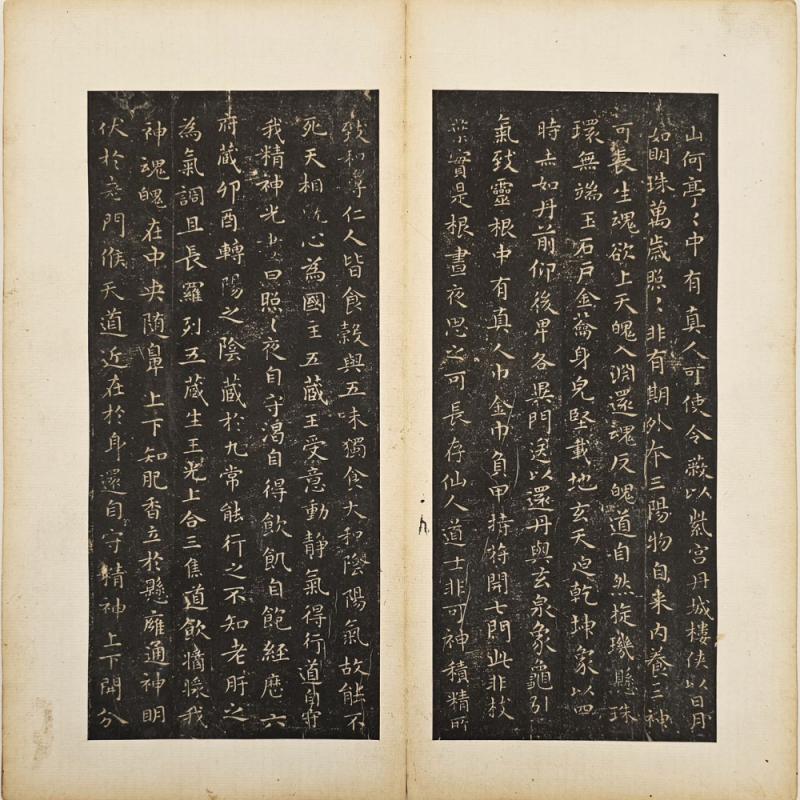 山何亭〻中有真人可使令蔽以紫宮丹城樓俠以日月
如明珠萬歲照〻非有期外本三陽物自来內養三神
可長生魂欲上天魄入淵還魂反魄道自然旋璣懸珠
環無端玉石戶金蘥身皃堅載地玄天迫乾坤象以四
時赤如丹前仰後卑各異門送以還丹與玄泉象龜引
氣致靈根中有真人巾金巾負甲持符開七門此非枝
葉實是根晝夜思之可長存仙人道士非可神積精所
致和專仁人皆食穀與五味獨食大和陰陽氣故能不
死天相既心為國主五藏王受意動靜氣得行道自守
我精神光晝日照〻夜自守渴自得飲飢自飽經歷六
府藏卯酉轉陽之陰藏於九常能行之不知老肝之
為氣調且長羅列五藏生三光上合三焦道飲漿我
神魂魄在中央随鼻上下知肥香立於懸廱通神明
伏於老門候天道近在於身還自守精神上下開分